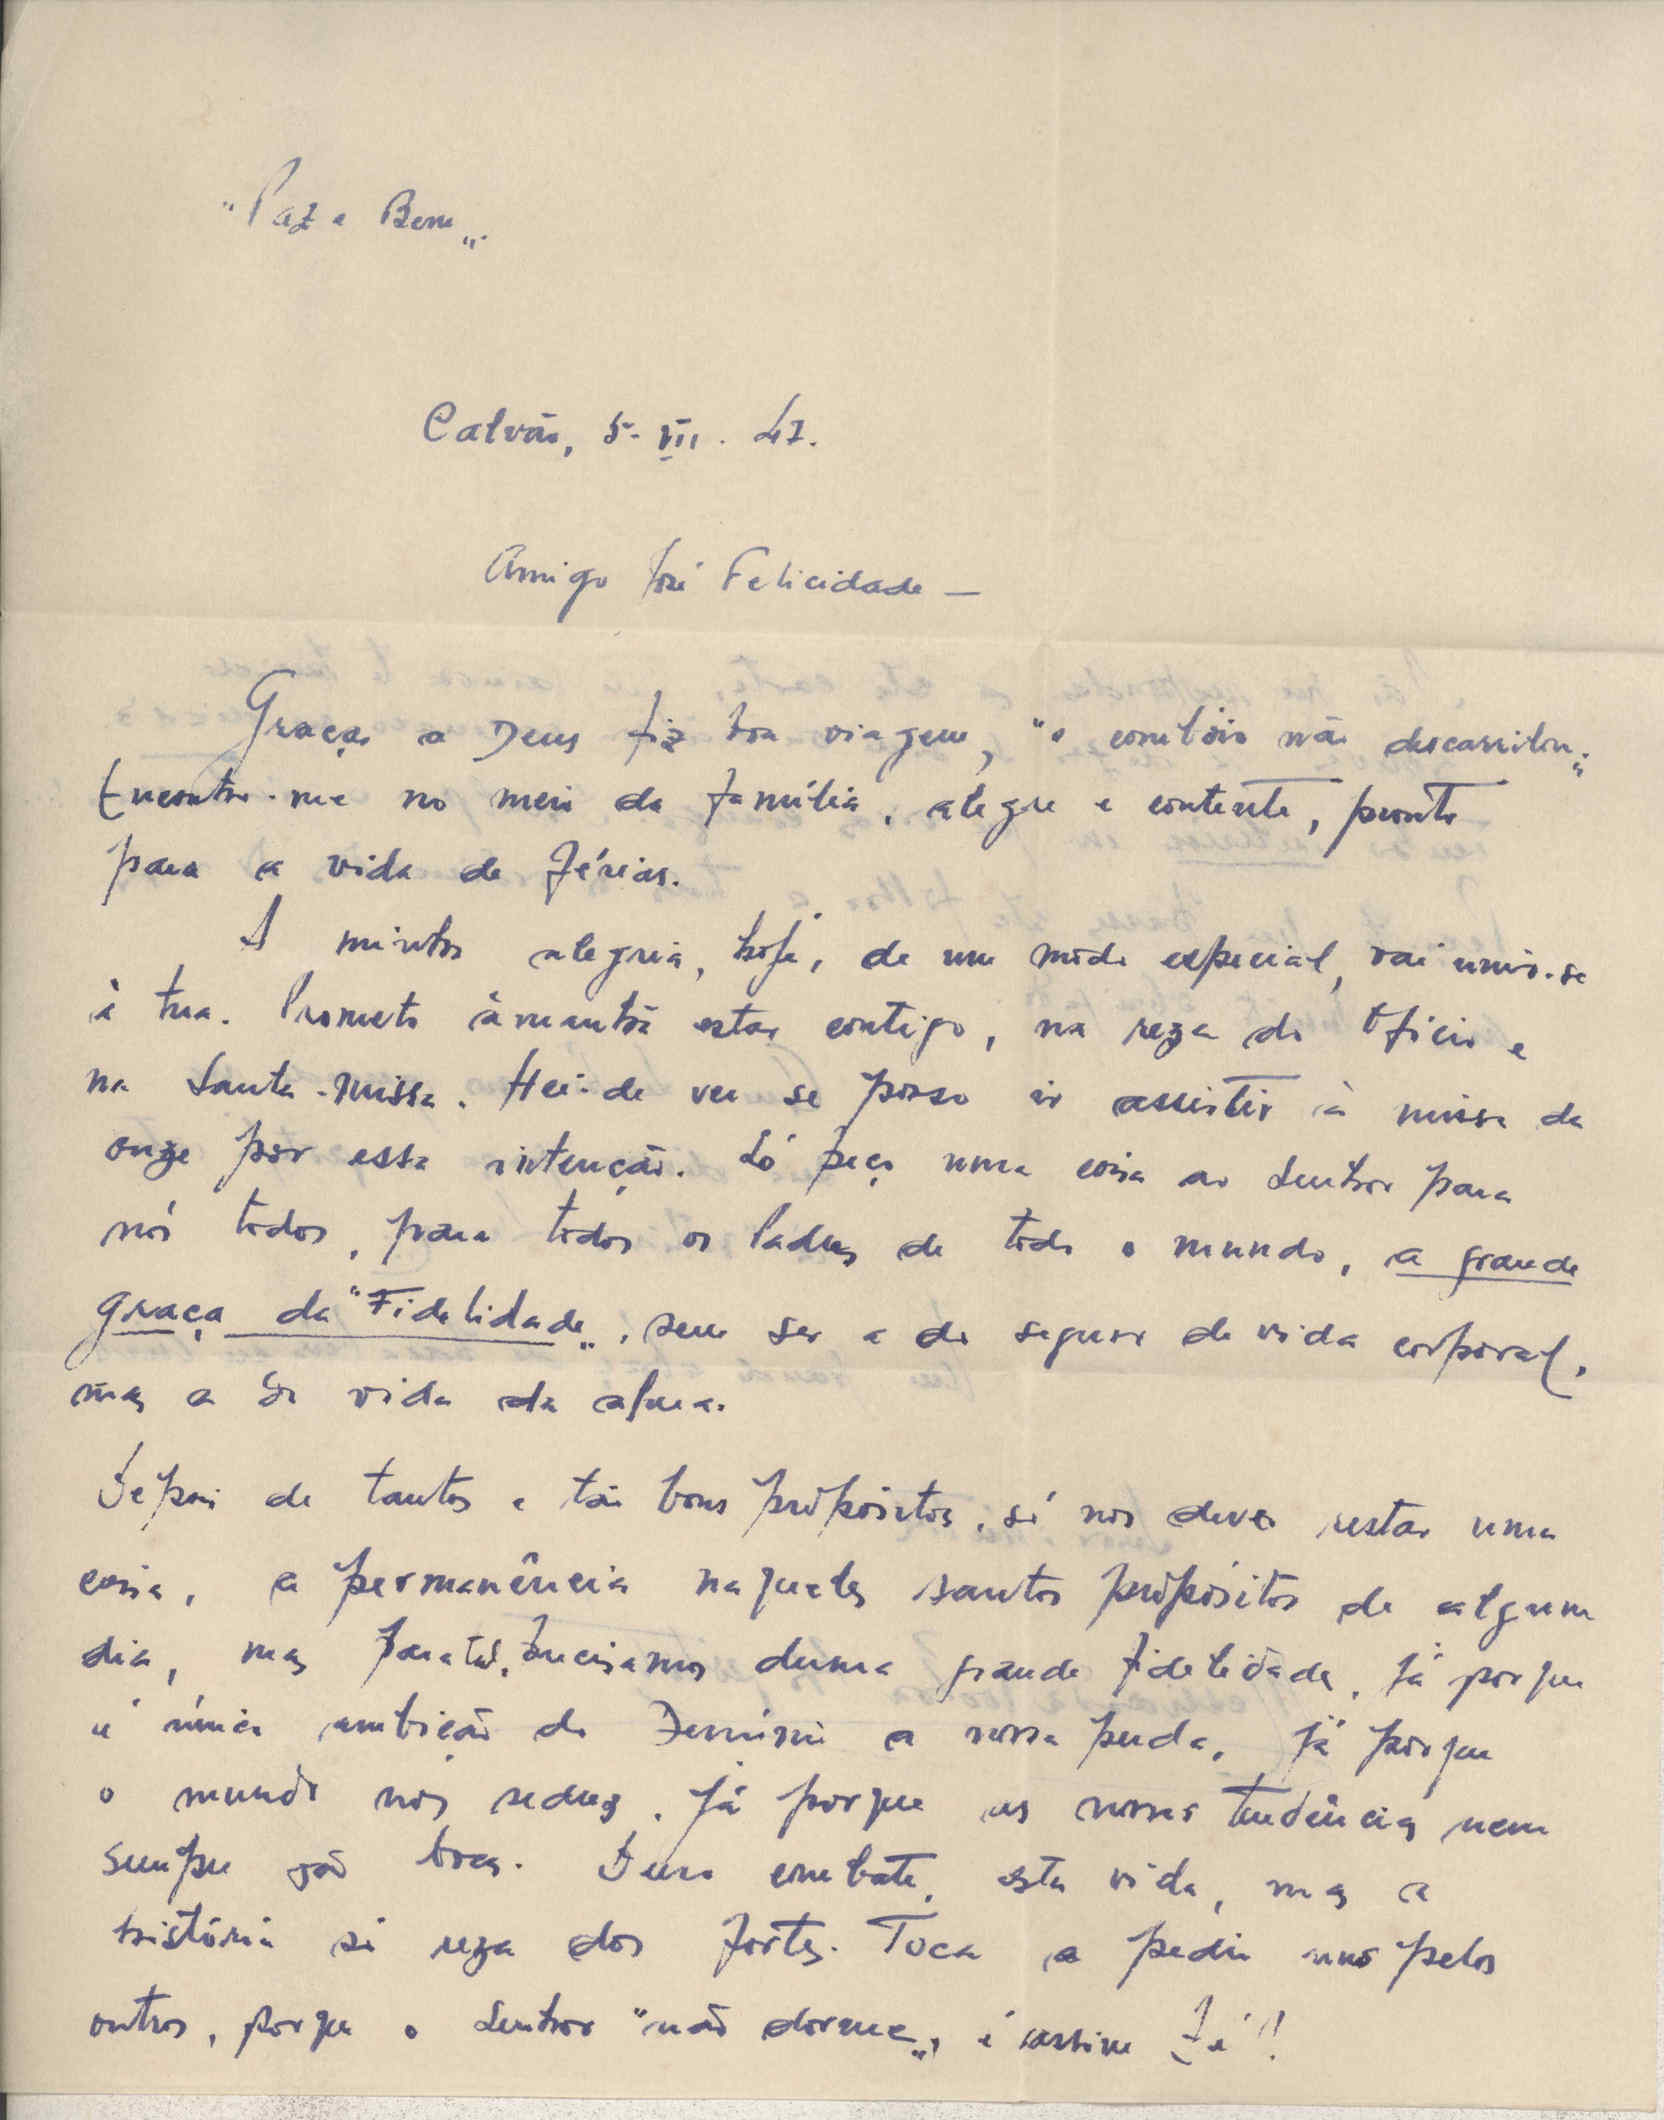 "Paz e Bem".
Calvão, 5-VII. 47.
Amigo José Felicidade —
Graças a Deus fiz boa viagem, "o comboio não descarrilou".
Encontro-me no meio da família, alegre e contente, pronto
para a vida de férias.
A minha alegria, hoje, de um modo especial, vai unir-se
à tua. Prometo àmanhã estar contigo, na reza do Ofício e
na Santa-Missa. Hei-de ver se posso ir assistir à missa da
onze por essa intenção. Só peço uma coisa ao Senhor para
nós todos, para todos os Padres de todo o mundo, a grande
graça da "Fidelidade", sem ser a do seguro de vida corporal,
mas a da vida da alma.
Depois de tantos e tão bons propósitos, só nos deve restar uma
coisa, a permanência naqueles santos propósitos de algum
dia, mas para tal, precisamos duma grande fidelidade, já porque
é única ambição do Demónio a nossa perda, já porque
o mundo nos seduz, já porque as nossas tendências nem
sempre são boas. Duro combate, esta vida, mas a
história só reza dos fortes. Toca a pedir uns pelos
outros, porque o Senhor "não dorme", é assim Zé!!